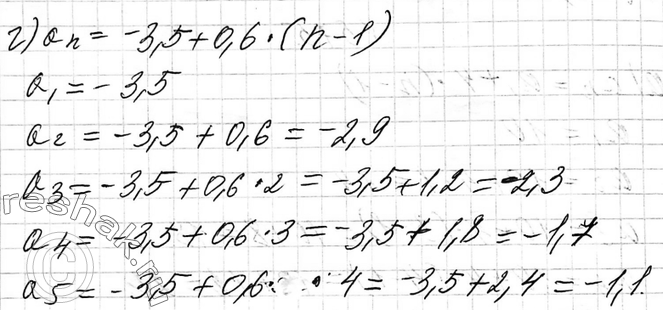 г) an = -3,5+0,6·(n-1)
a1 = -3,5
a2 = -3,5+0,6 = -2,9
a3 = -3,5+0,6·2 = -3,5+1,2 = -2,3
a4 = -3,5+0,6·3 = -3,5+1,8 = -1,7
a5 = -3,5+0,6··4 = -3,5+2,4 = -1,1.